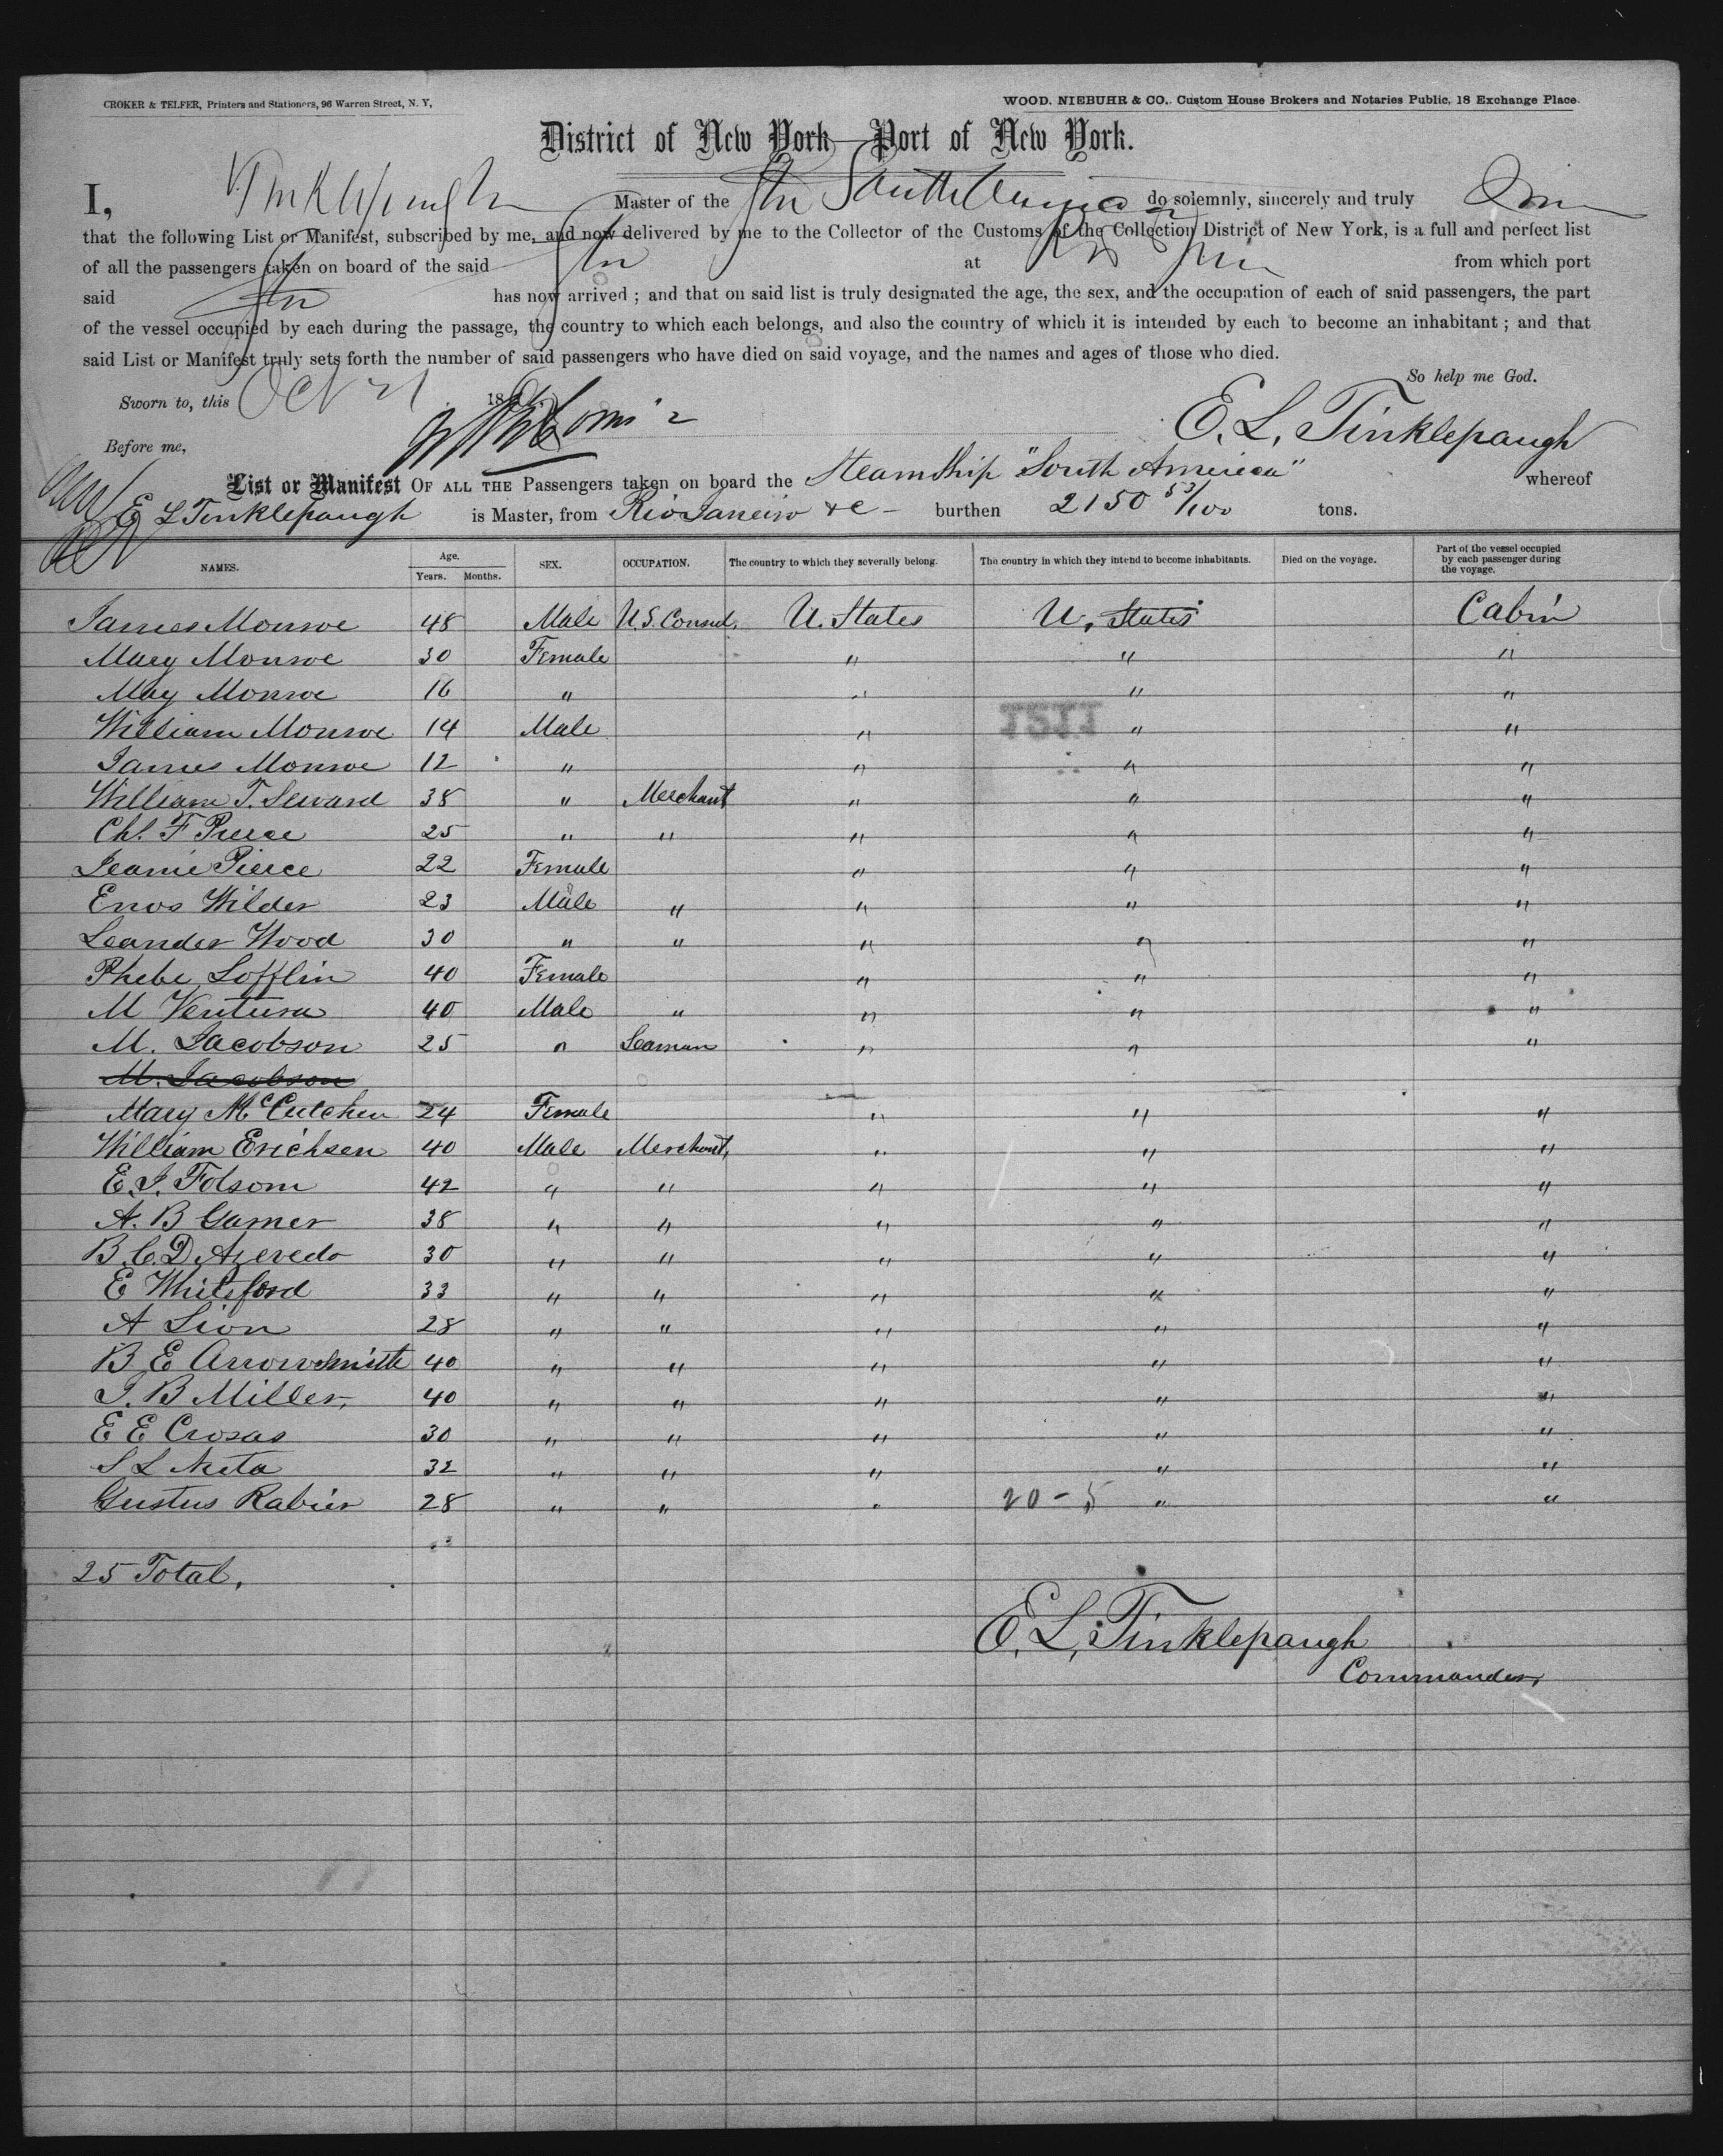 CROKER & TELFER, Printers and Stationers, 96 Warren Street, N. Y,
WOOD, NIEBUHR & CO., Custom House Brokers and Notaries Public, 18 Exchange Place.
District of New York—Port of New York.
I, Tinklepaugh Master of the Str South America do solemnly, sincerely and truly
that the following List or Manifest, subscribed by me, and now delivered by me to the Collector of the Customs of the Collection District of New York, is a full and perfect list
of all the passengers taken on board of the said Str at from which port
said Str has now arrived; and that on said list is truly designated the age, the sex, and the occupation of each of said passengers, the part
of the vessel occupied by each during the passage, the country to which each belongs, and also the country of which it is intended by each to become an inhabitant; and that
said List or Manifest truly sets forth the number of said passengers who have died on said voyage, and the names and ages of those who died.
So help me God.
Sworn to, this Oct 21 18
E. L. Tinklepaugh
Before me,
List or Manifest OF ALL THE Passengers taken on board the Steamship "South America" whereof
E L Tinklepaugh is Master, from Rio Janeiro &c - burthen 2150 53/100 tons.
NAMES. Age. Years. Months. SEX. OCCUPATION. The country to which they severally belong. The country in which they intend to become inhabitants. Died on the voyage. Part of the vessel occupied by each passenger during the voyage.
James Monroe 48 Male U.S. Consul. U. States U. States Cabin
Mary Monroe 30 Female " " "
May Monroe 16 " " " "
William Monroe 14 Male " " "
James Monroe 12 " " " "
William T. Seward 38 " Merchant " " "
Chs. F Pierce 25 " " " " "
Jeanie Pierce 22 Female " " "
Enos Wilder 23 Male " " " "
Leander Wood 30 " " " " "
Phebe Lofflin 40 Female " " "
M Ventura 40 Male " " " "
M. Jacobson 25 " Seaman " " "
M. Jacobson
Mary McCutchen 24 Female " " "
William Erichsen 40 Male Merchant, " " "
E. J. Folsom 42 " " " " "
A. B Garner 38 " " " " "
B. C. D. Azevedo 30 " " " " "
E Whiteford 33 " " " " "
A Lion 28 " " " " "
B E Arrowsmith 40 " " " " "
J. B Miller, 40 " " " " "
E E Crosas 30 " " " " "
S L Neta 32 " " " " "
Gustus Rabier 28 " " " 20 - 5 " "
25 Total.
E. L. Tinklepaugh
Commander,